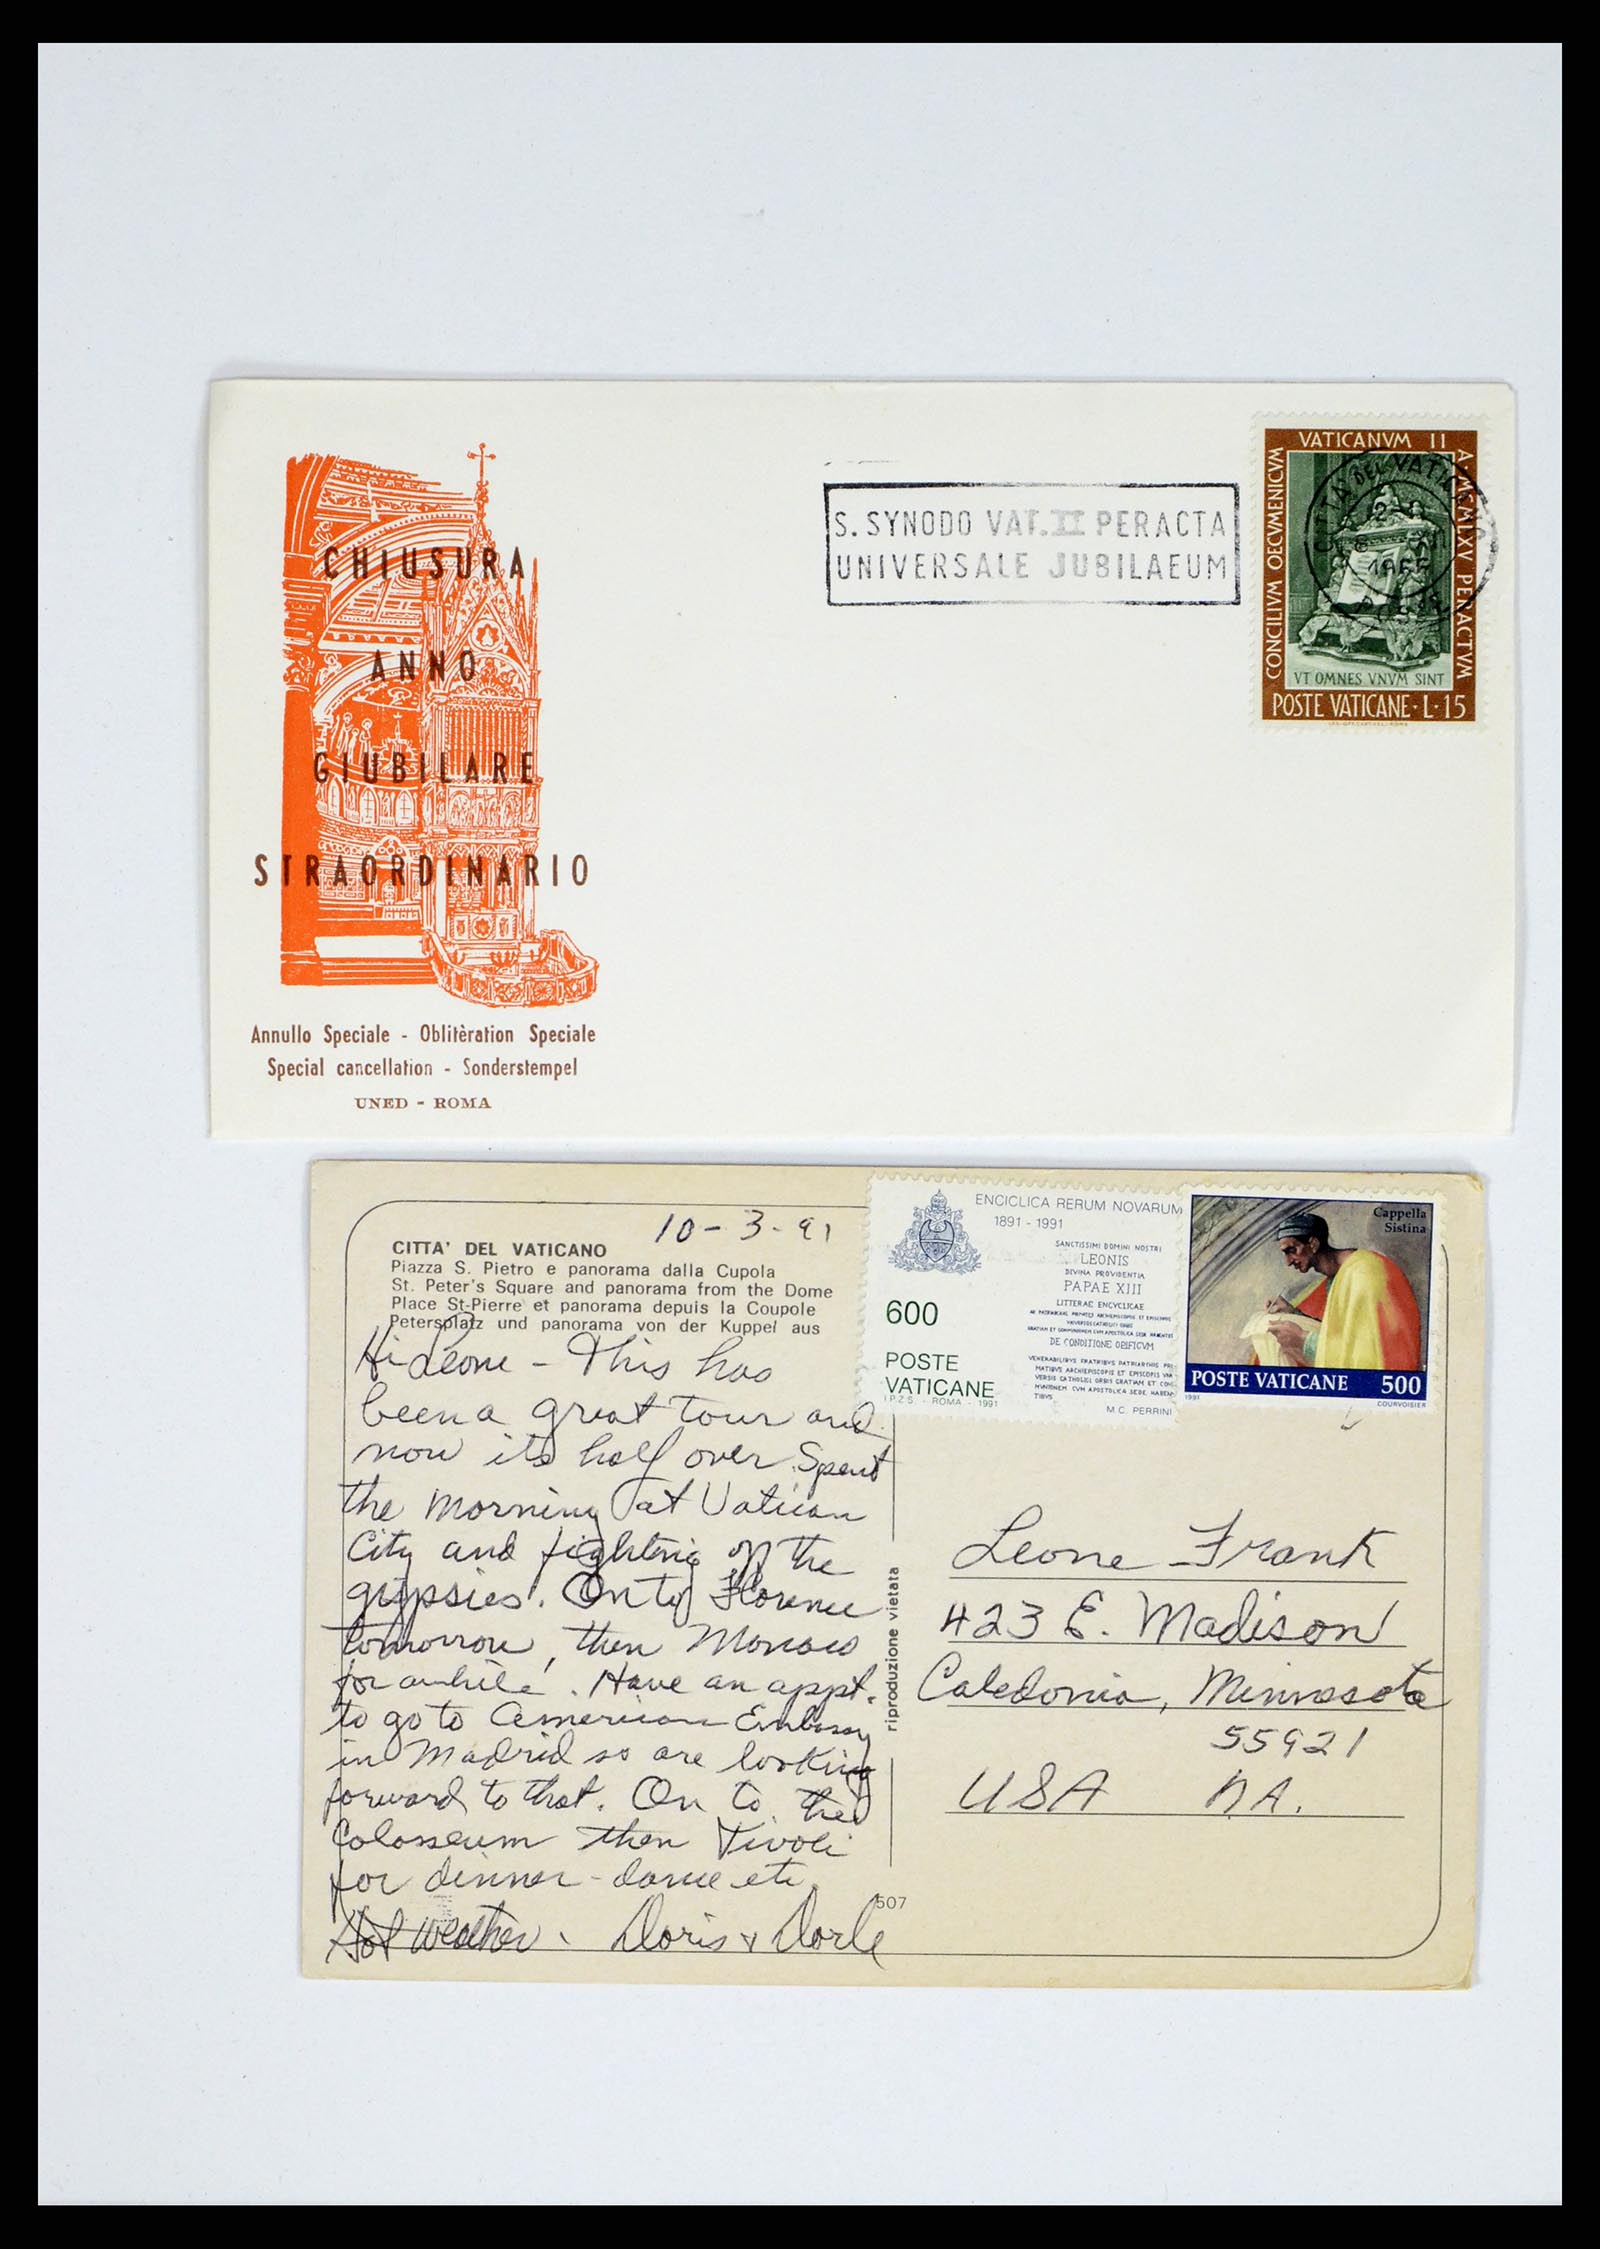 CHIUSURA
ANNO
GIUBILARE
STRAORDINARIO
Annullo Speciale - Oblitèration Speciale
Special cancellation - Sonderstempel
UNED - ROMA
S. SYNODO VAT. II PERACTA
UNIVERSALE JUBILAEUM
VATICANVM II
CONCILIVM OECVMENICVM
A. MCMLXV PERACTVM
CITTÀ DEL VATICANO
VT OMNES VNVM SINT
POSTE VATICANE · L · 15
10-3-91
CITTA' DEL VATICANO
Piazza S. Pietro e panorama dalla Cupola
St. Peter's Square and panorama from the Dome
Place St-Pierre et panorama depuis la Coupole
Petersplatz und panorama von der Kuppel aus
Hi Leone - This has
been a great tour and
now its half over. Spent
the morning at Vatican
City and fighting off the
gypsies. On to Florence
tomorrow, then Monaco
for awhile. Have an appt.
to go to American Embassy
in Madrid so are looking
forward to that. On to the
Colosseum then Tivoli
for dinner - dance etc.
Hot weather. Doris &
507
riproduzione vietata
ENCICLICA RERUM NOVARUM
1891 - 1991
SANCTISSIMI DOMINI NOSTRI
LEONIS
DIVINA PROVIDENTIA
PAPAE XIII
LITTERAE ENCYCLICAE
DE CONDITIONE OPIFICVM
600
POSTE
VATICANE
I.P.Z.S. - ROMA - 1991
M.C. PERRINI
Cappella
Sistina
POSTE VATICANE 500
1991
COURVOISIER
Leone Frank
423 E. Madison
Caledonia, Minnesota
55921
USA NA.